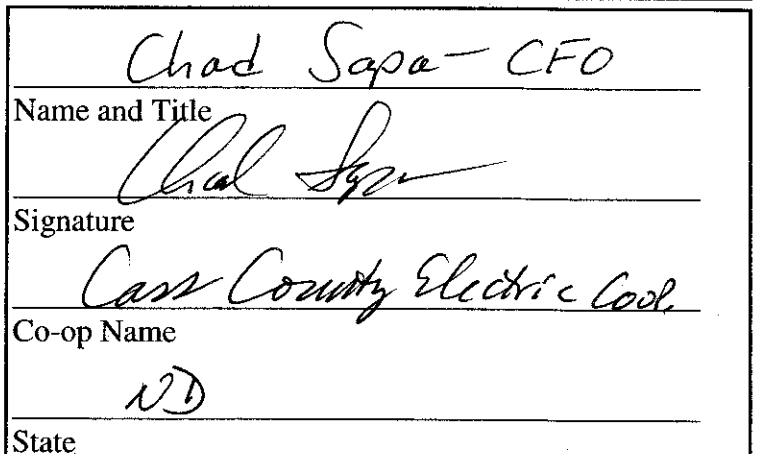 Chad Sapa - CFO
Name and Title
Chad Sapa
Signature
Cass County Electric Coop.
Co-op Name
ND
State